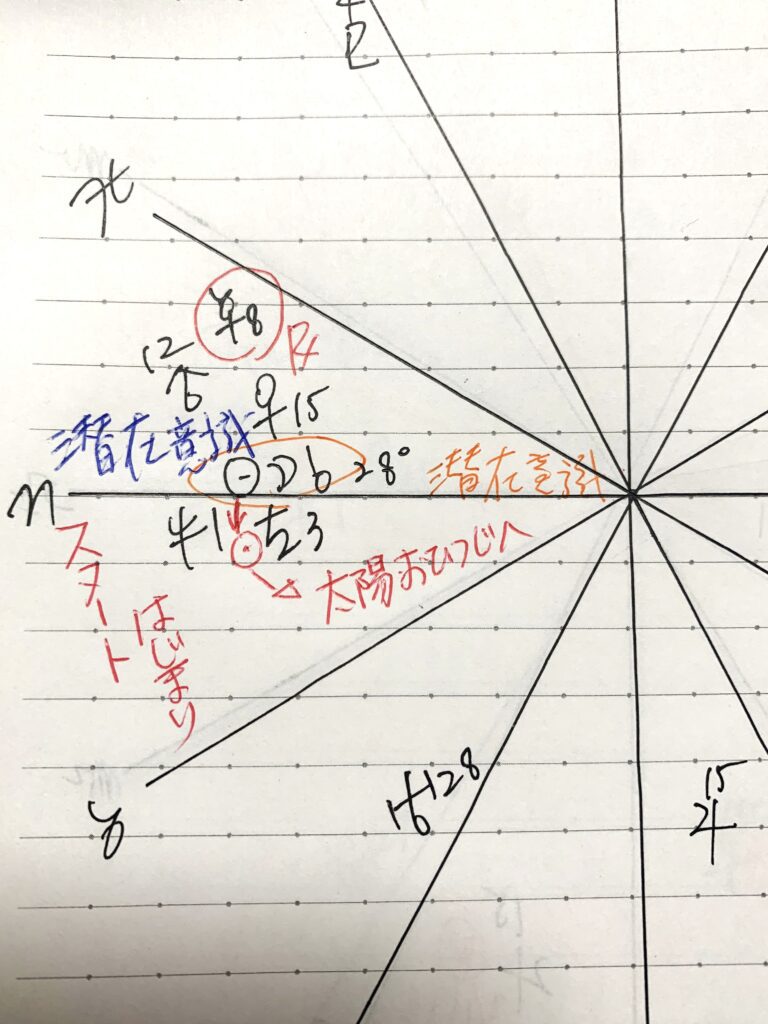 8
12
15
潜在意識
28°
潜在意識
1
3
太陽おひつじへ
スタート
はじまり
28
15